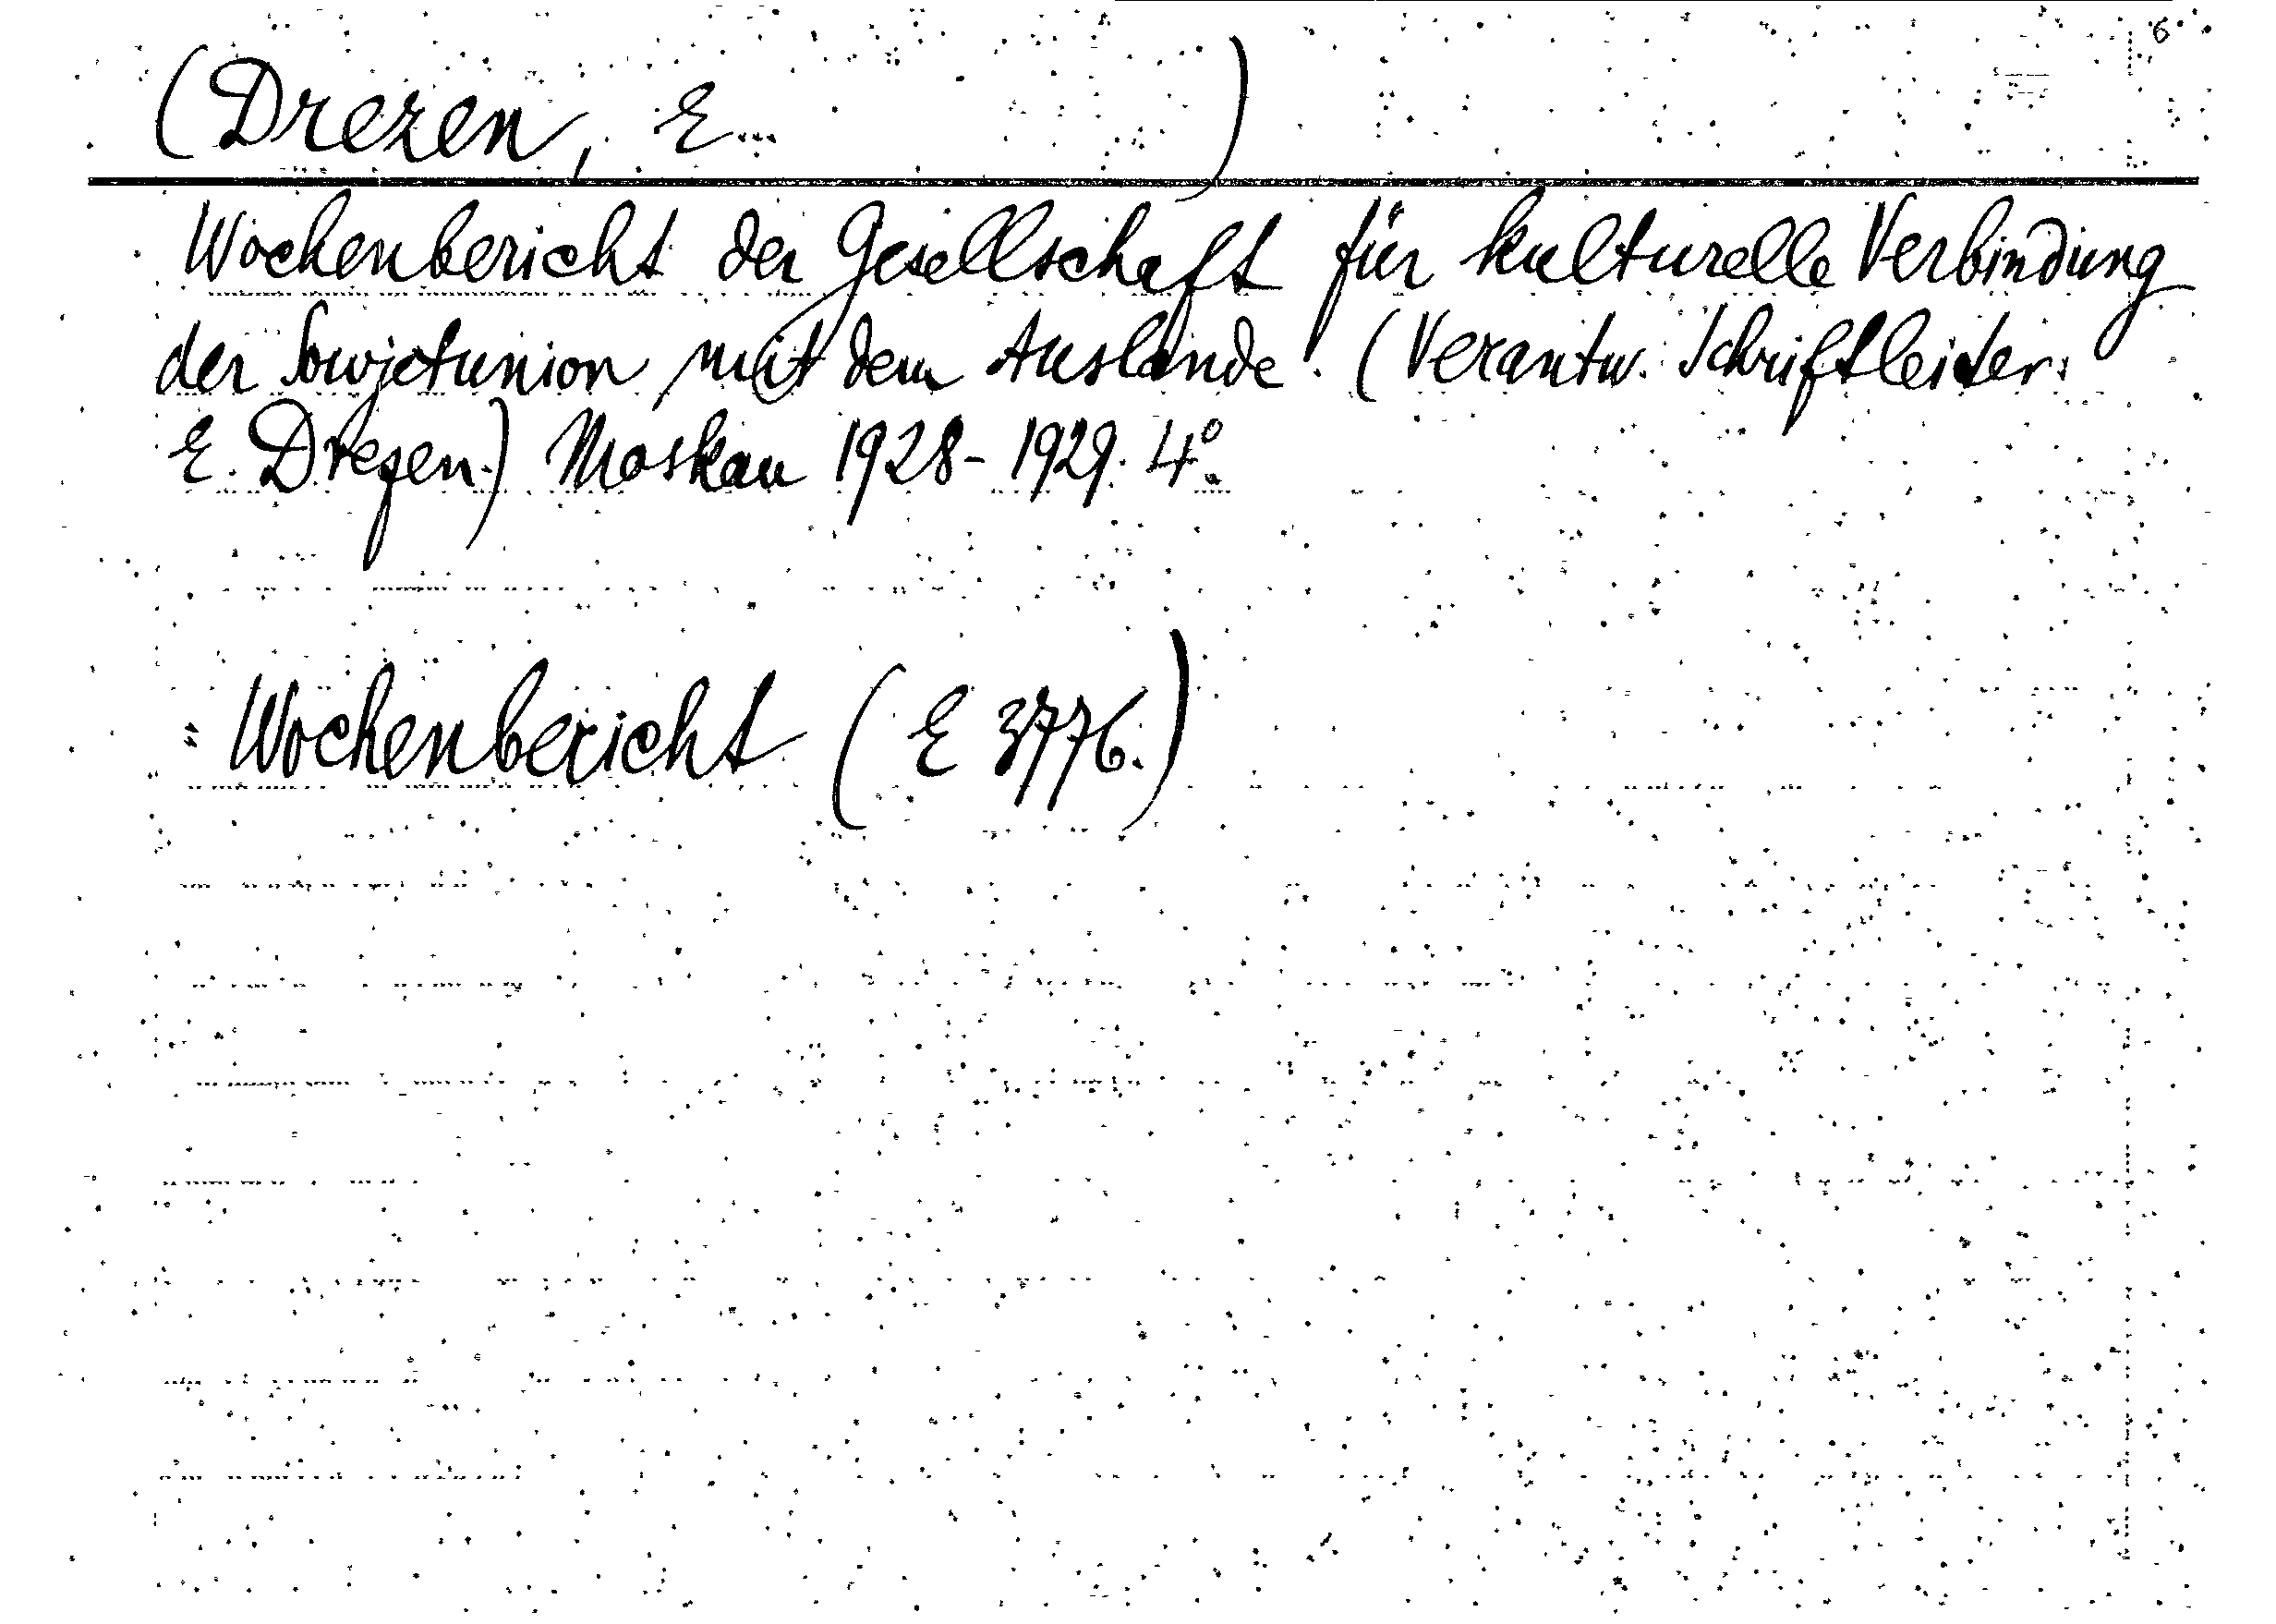 6
(Drezen, E... )
Wochenbericht der Gesellschaft für kulturelle Verbindung
der Sowjetunion mit dem Auslande. (Verantw. Schriftleiter:
E. Drezen.) Moskau 1928-1929. 4°.
= Wochenbericht (E 3776.)